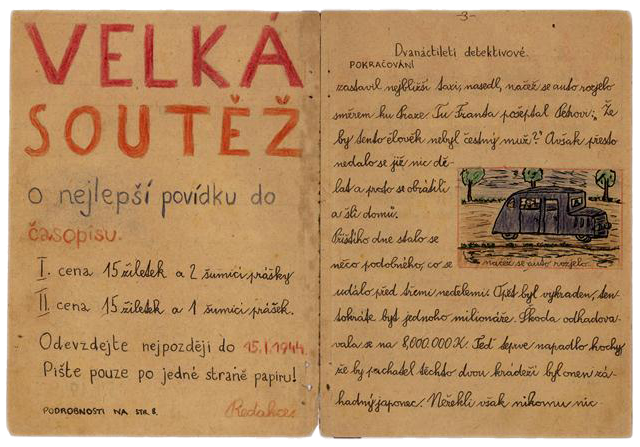 VELKÁ
SOUTĚŽ
o nejlepší povídku do
časopisu.
I. cena 15 žiletek a 2 šumící prášky
II. cena 15 žiletek a 1 šumící prášek.
Odevzdejte nejpozději do 15.I.1944.
Pište pouze po jedné straně papíru!
PODROBNOSTI NA STR. 8.
Redakce
-3-
Dvanáctiletí detektivové.
POKRAČOVÁNÍ
zastavil nejbližší taxi, nasedl, načež se auto rozjelo
směrem ku Praze. Tu Franta pošeptal Petrovi: "Že
by tento člověk nebyl čestný muž?" Avšak přesto
nedalo se již nic dě-
lat a proto se obrátili
a šli domů.
Příštího dne stalo se
něco podobného, co se
načež se auto rozjelo
událo před třemi nedělemi. Opět byl vykraden, ten-
tokráte byt jednoho milionáře. Škoda odhadova-
vala se na 8,000.000 K. Teď teprve napadlo hochy
že by pachatel těchto dvou krádeží byl onen zá-
hadný japonec. Neřekli však nikomu nic